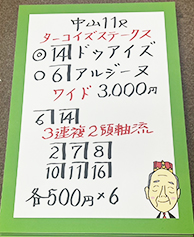 中山11R
ターコイズステークス
◎14ドゥアイズ
○6アルジーヌ
ワイド 3.000円
6 14
3連複2頭軸流
2 7 8
10 11 16
各500円×6